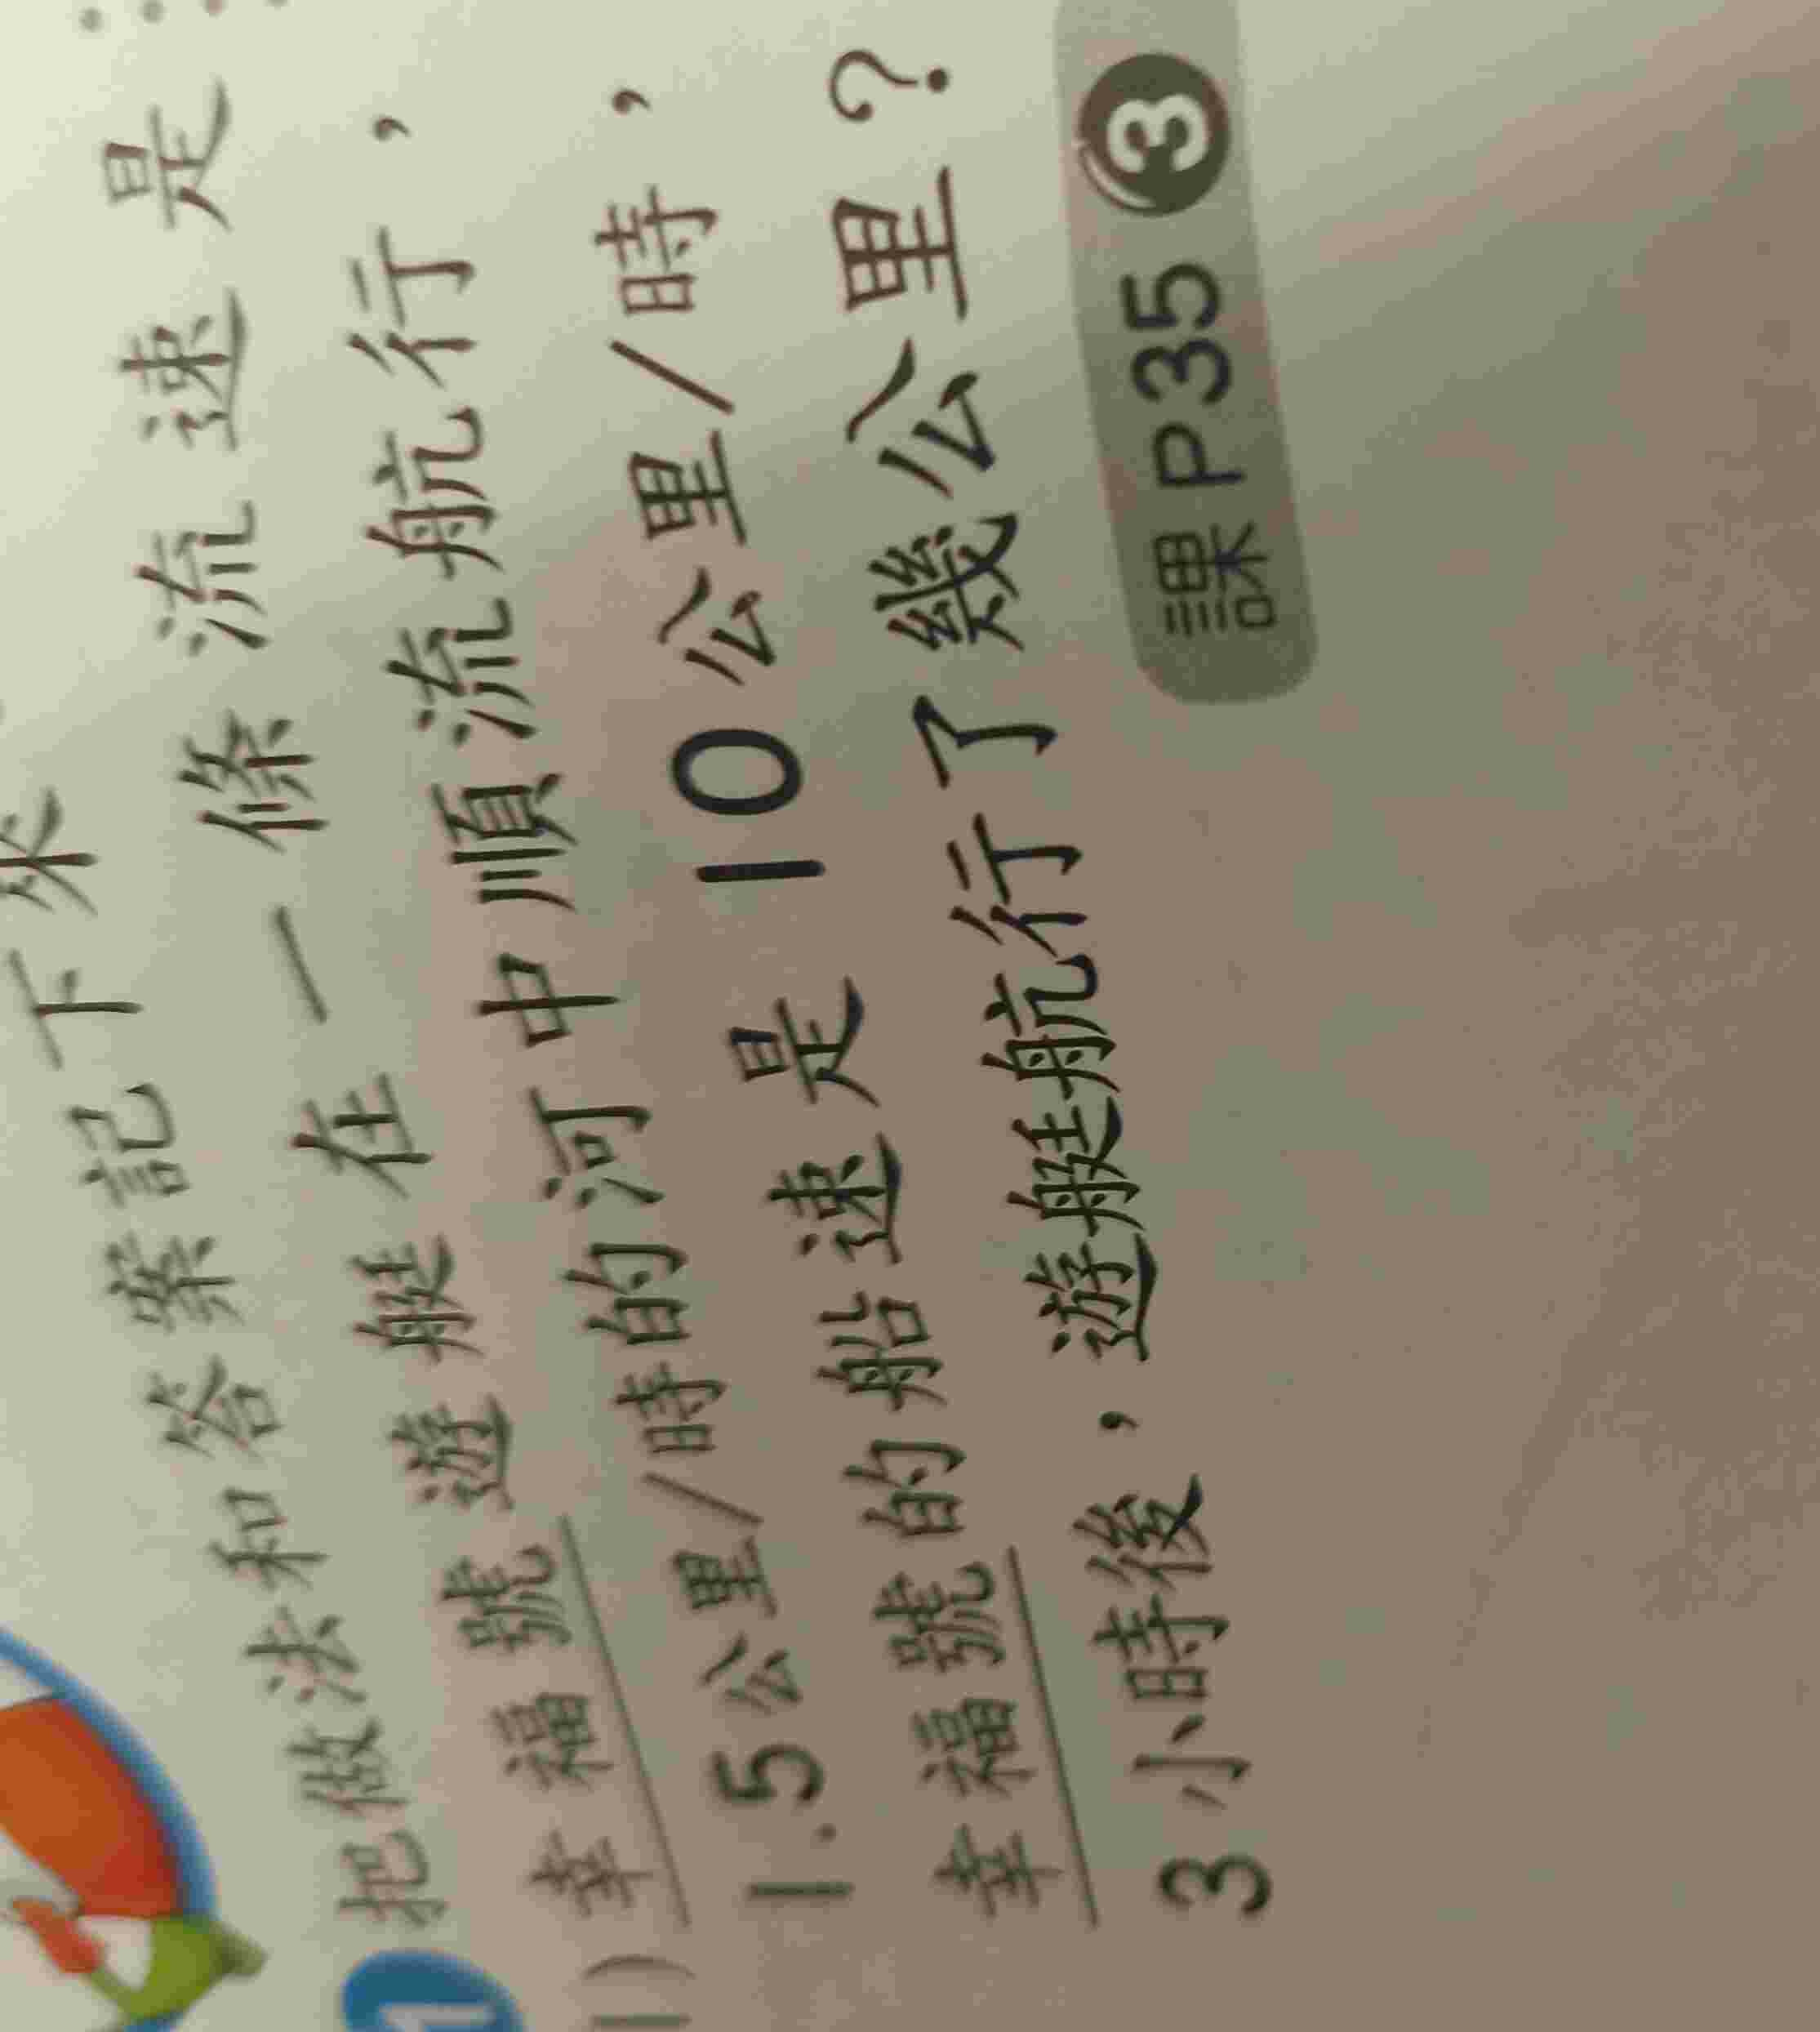 把做法和答案記下來
1) 幸福號遊艇在一條流速是
1.5公里/時的河中順流航行，
幸福號的船速是 10 公里/時，
3小時後，遊艇航行了幾公里？
課 P35 3